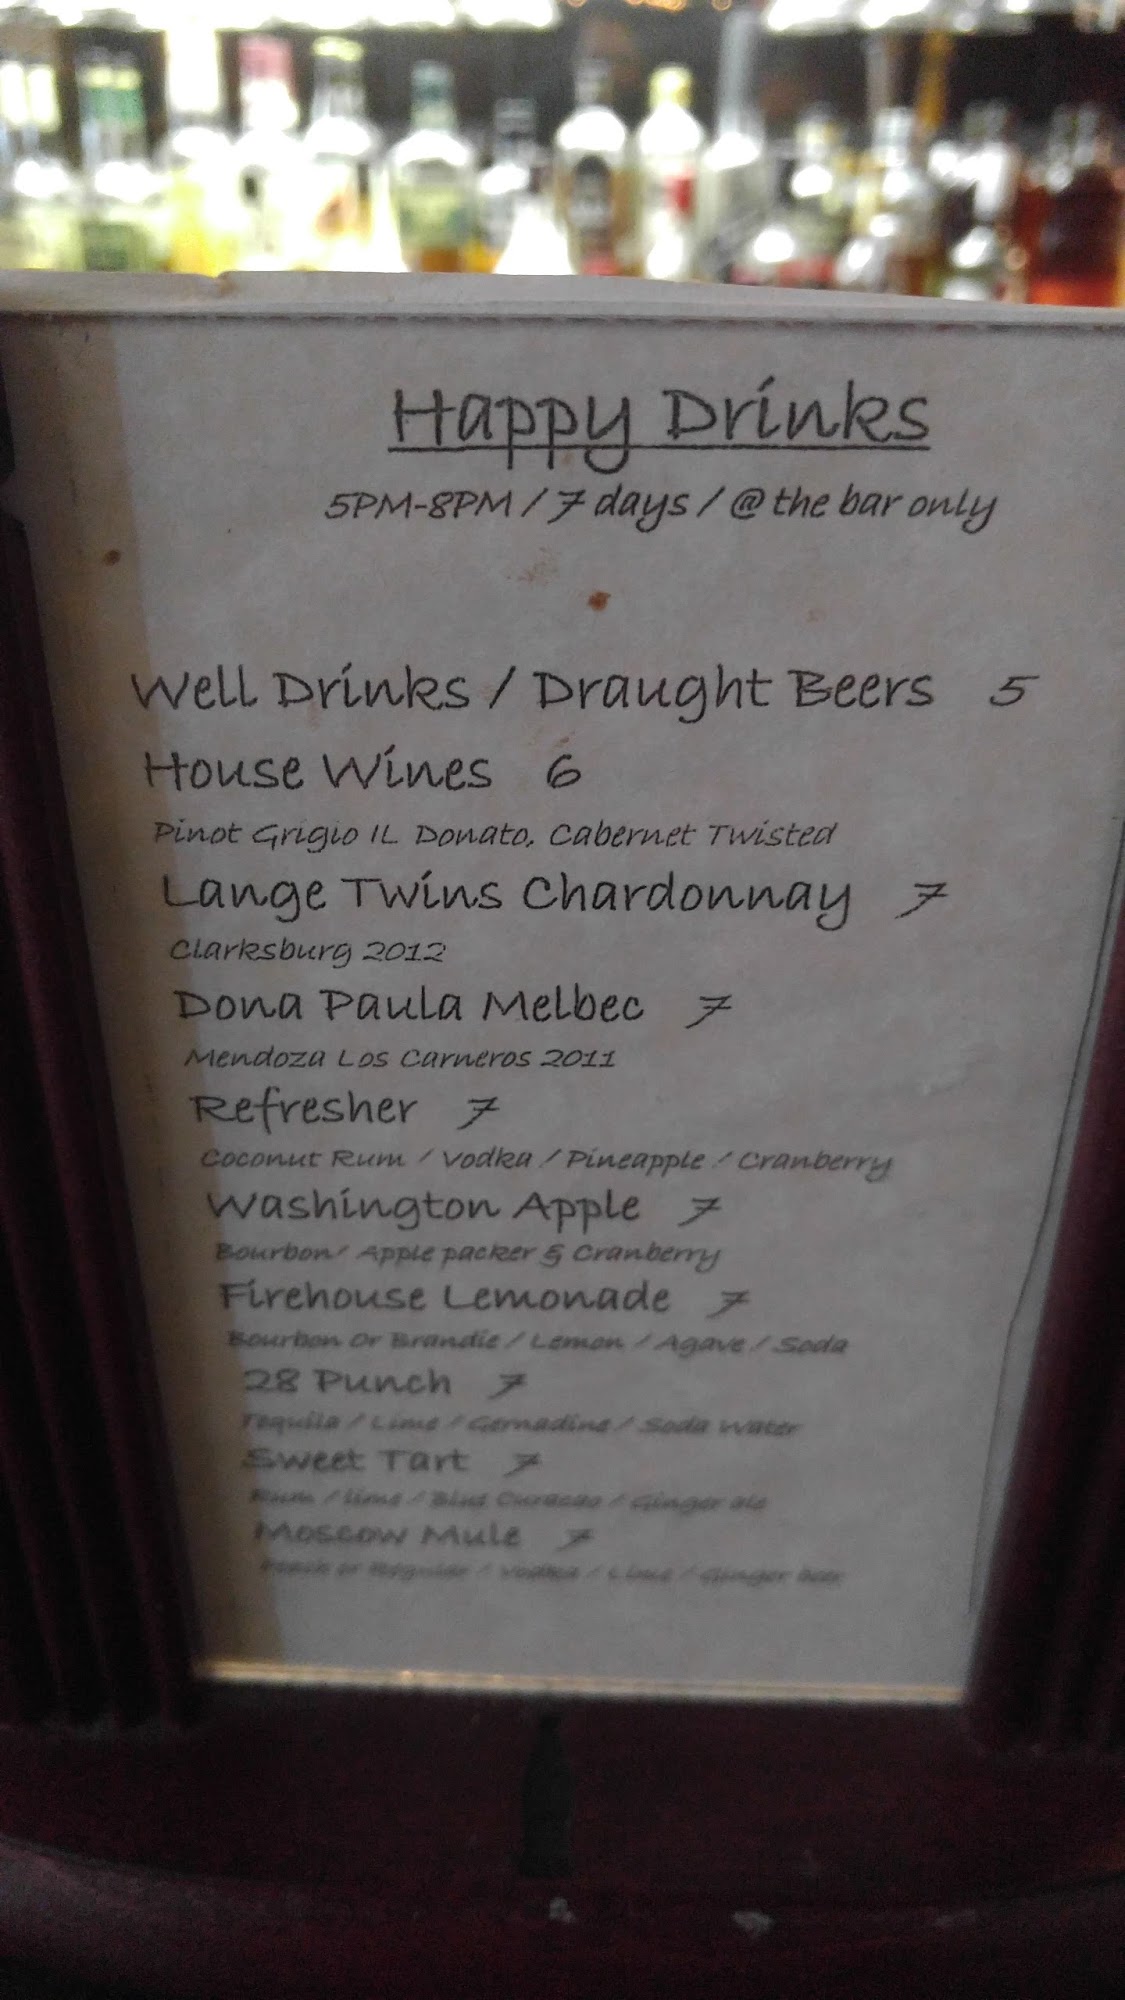 Happy Drinks
5PM-8PM / 7 days / @ the bar only
Well Drinks / Draught Beers 5
House Wines 6
Pinot Grigio IL Donato, Cabernet Twisted
Lange Twins Chardonnay 7
Clarksburg 2012
Dona Paula Melbec 7
Mendoza Los Carneros 2011
Refresher 7
Coconut Rum / Vodka / Pineapple / Cranberry
Washington Apple 7
Bourbon/ Apple packer & Cranberry
Firehouse Lemonade 7
Bourbon Or Brandie / Lemon / Agave / Soda
28 Punch 7
Tequila / Lime / Gernadine / Soda Water
Sweet Tart 7
Rum / lime / Blue Curacao / Ginger ale
Moscow Mule 7
Peach or Regular / Vodka / Lime / Ginger beer